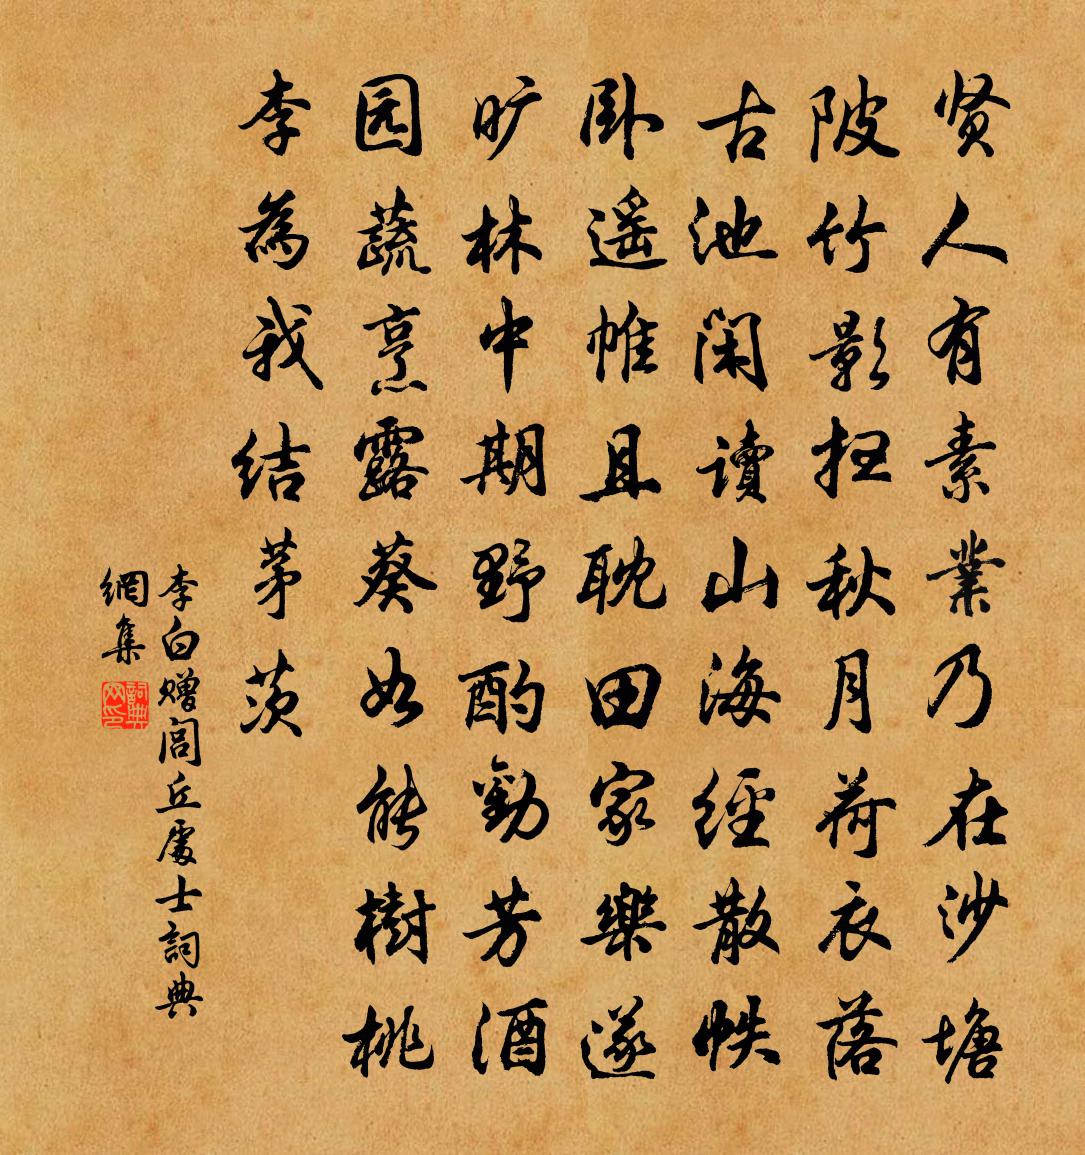 贤人有素業乃在沙塘
陂竹影扫秋月荷衣落
古池闲讀山海經散帙
卧遥帷且耽田家樂遂
旷林中期野酌勸芳酒
园蔬烹露葵如能樹桃
李為我结茅茨
李白赠闾丘處士詞典
網集
詞典网印